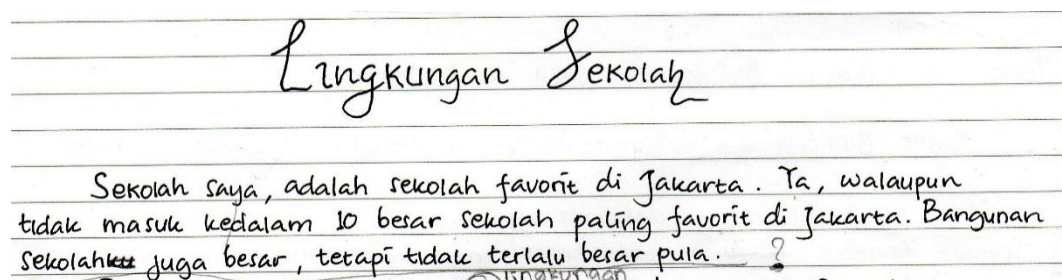 Lingkungan Sekolah
Sekolah saya, adalah sekolah favorit di Jakarta. Ya, walaupun
tidak masuk kedalam 10 besar sekolah paling favorit di Jakarta. Bangunan
sekolah juga besar, tetapi tidak terlalu besar pula. ?
lingkungan